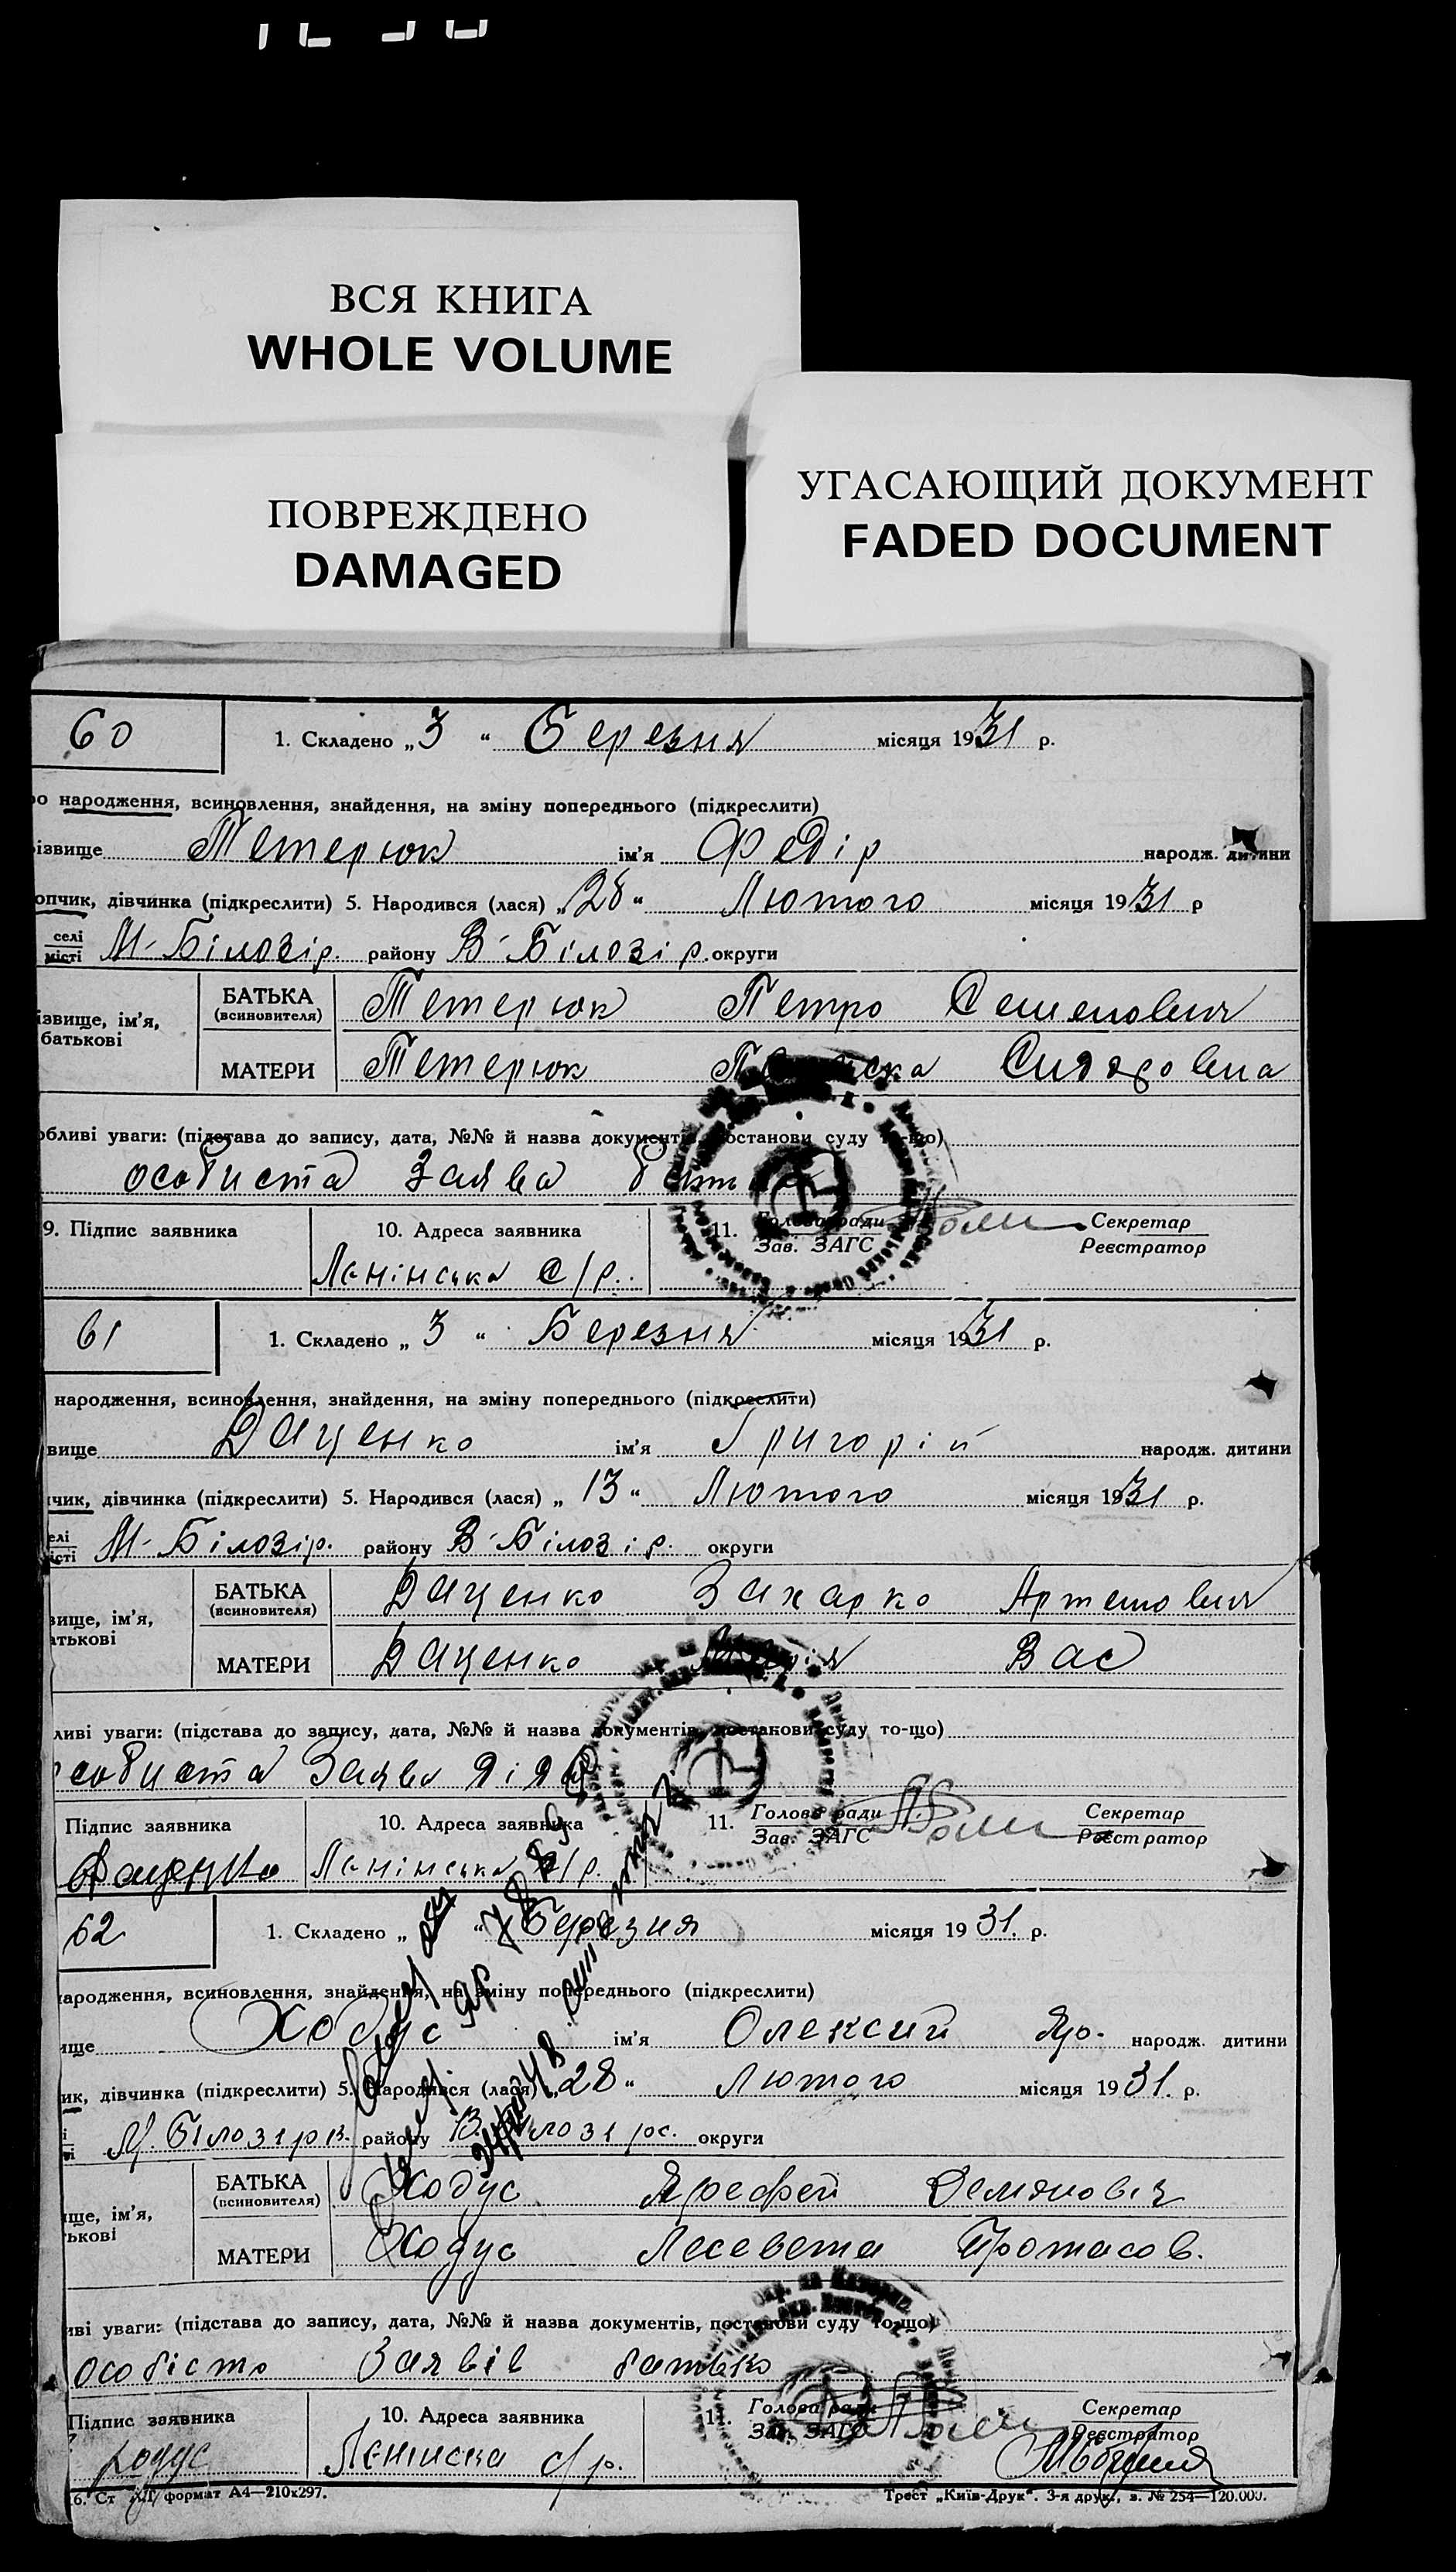 ВСЯ КНИГА
WHOLE VOLUME
ПОВРЕЖДЕНО
DAMAGED
УГАСАЮЩИЙ ДОКУМЕНТ
FADED DOCUMENT
60 1. Складено „3 “ Березня місяця 1931 р.
ро народження, всиновлення, знайдення, на зміну попереднього (підкреслити)
ізвище Тетерюк ім’я Федір народж. дитини
опчик, дівчинка (підкреслити) 5. Народився (лася) „28“ Лютого місяця 1931 р
селі
місті М-Білозір. району В-Білозір. округи
ізвище, ім’я,
батькові
БАТЬКА
(всиновителя) Тетерюк Петро Семенович
МАТЕРИ Тетерюк
обливі уваги: (підстава до запису, дата, №№ й назва документів, постанови суду то-що)
особиста Заява
9. Підпис заявника 10. Адреса заявника 11. Голова ради Секретар
Зав. ЗАГС Реєстратор
Ленінська с/р.
61 1. Складено „ 3 “ Березня місяця 1931 р.
народження, всиновлення, знайдення, на зміну попереднього (підкреслити)
вище Даценко ім’я Григорій народж. дитини
чик, дівчинка (підкреслити) 5. Народився (лася) „ 13 “ Лютого місяця 1931 р.
елі
істі М-Білозір. району В-Білозір. округи
вище, ім’я,
атькові
БАТЬКА
(всиновителя) Даценко Захарко Артемович
МАТЕРИ Даценко Вас
ливі уваги: (підстава до запису, дата, №№ й назва документів, постанови суду то-що)
собиста Заява діда
Підпис заявника 10. Адреса заявника 11. Голова ради Секретар
Зав. ЗАГС Реєстратор
Даценко Ленінська с/р.
62 1. Складено „ “ Березня місяця 19 31. р.
народження, всиновлення, знайдення, на зміну попереднього (підкреслити)
ище Ходус ім’я Олексий Яро. народж. дитини
ик, дівчинка (підкреслити) 5. Народився (лася) „28 “ Лютого місяця 19 31. р.
М. Білозірс. району В. Білозірс. округи
ище, ім’я,
ькові
БАТЬКА
(всиновителя) Ходус Ярофей Демянович
МАТЕРИ Ходус Лесевета Протасов.
иві уваги: (підстава до запису, дата, №№ й назва документів, постанови суду то-що)
особісто Заявів батько
Підпис заявника 10. Адреса заявника 11. Голова ради Секретар
Зав. ЗАГС Реєстратор
Ходус Ленінска с/р.
6. Ст формат А4—210х297. Трест „Київ-Друк“. 3-я друк., з. № 254—120.000.